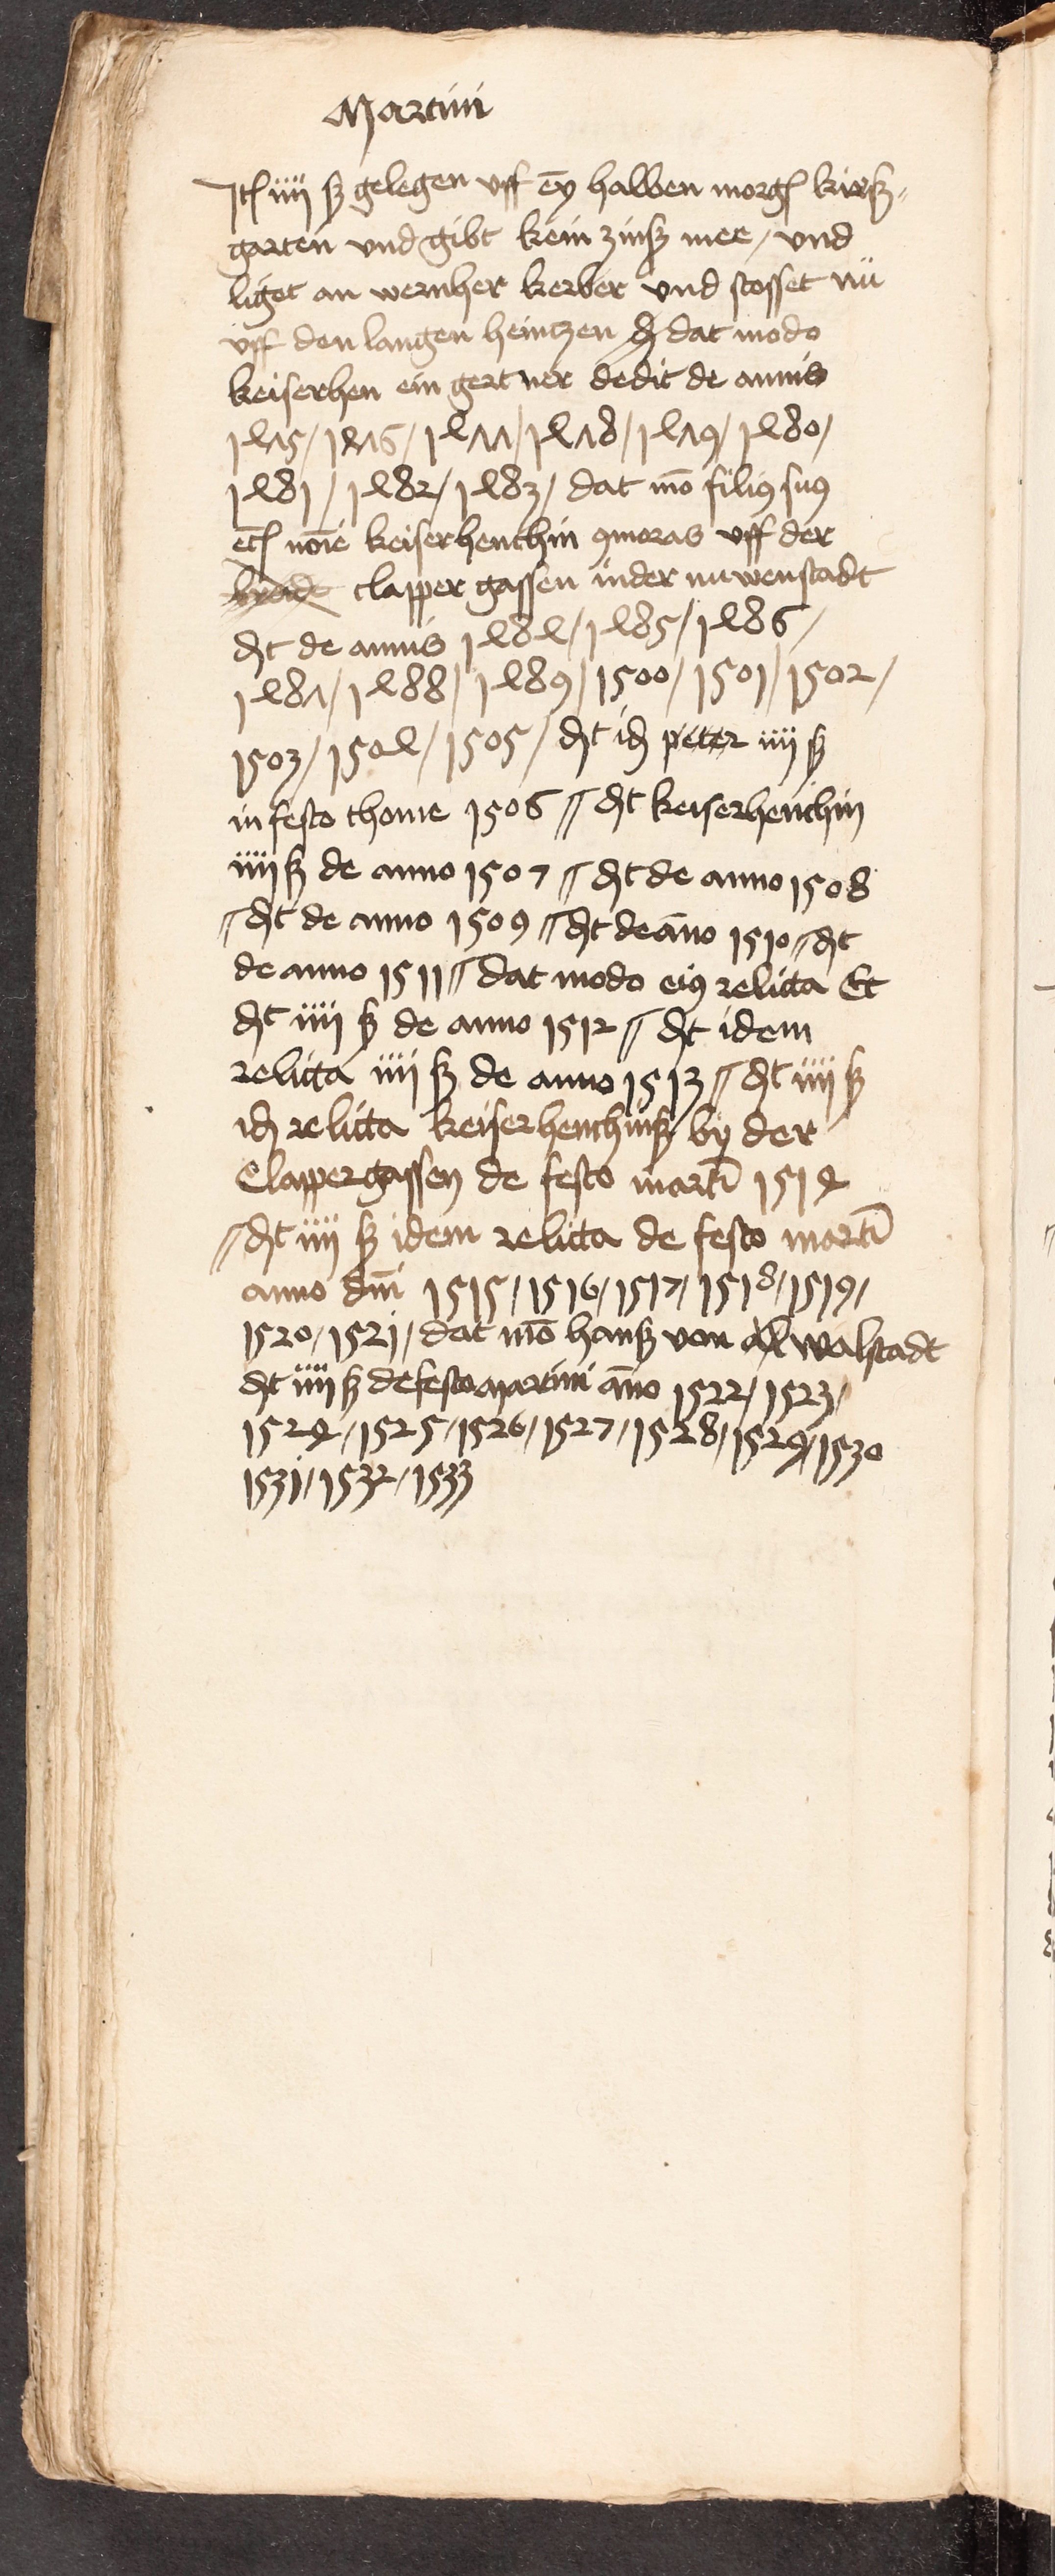 Martini
Itē iiii ß gelegen vff eȳ halben morgē kirß-
garten vnd gibt kein zinß mee / vnd
liget an wernher kerber vnd stosset nu
vff den langen heintzen dat modo
keiserhen ein gertner dedit de annis
1475 / 1476 / 1477 / 1478 / 1479 / 1480 /
1481 / 1482 / 1483 / dat mō filiꝰ suꝰ
etē noīe keiserhenchin ꝯmorās vff der
clapper gassen in der nuwenstadt
dt de annis 1484 / 1485 / 1486 /
1487 / 1488 / 1489 / 1500 / 1501 / 1502 /
1503 / 1504 / 1505 / dt id peter iiii ß
in festo thome 1506 // dt keiserhenchin
iiii ß de anno 1507 // dt de anno 1508
// dt de anno 1509 // dt de āno 1510 // dt
de anno 1511 // dat modo eiꝰ relicta Et
dt iiii ß de anno 1512 // dt idem
relicta iiii ß de anno 1513 // dt iiii ß
id relicta keiserhenchinß by der
Clappergassen de festo martī 1514
// dt iiii ß idem relicta de festo martī
anno dnī 1515 / 1516 / 1517 / 1518 / 1519 /
1520 / 1521 / dat mō hanß von walstadt
dt iiii ß de festo martini āno 1522 / 1523 /
1524 / 1525 / 1526 / 1527 / 1528 / 1529 / 1530
1531 / 1532 / 1533